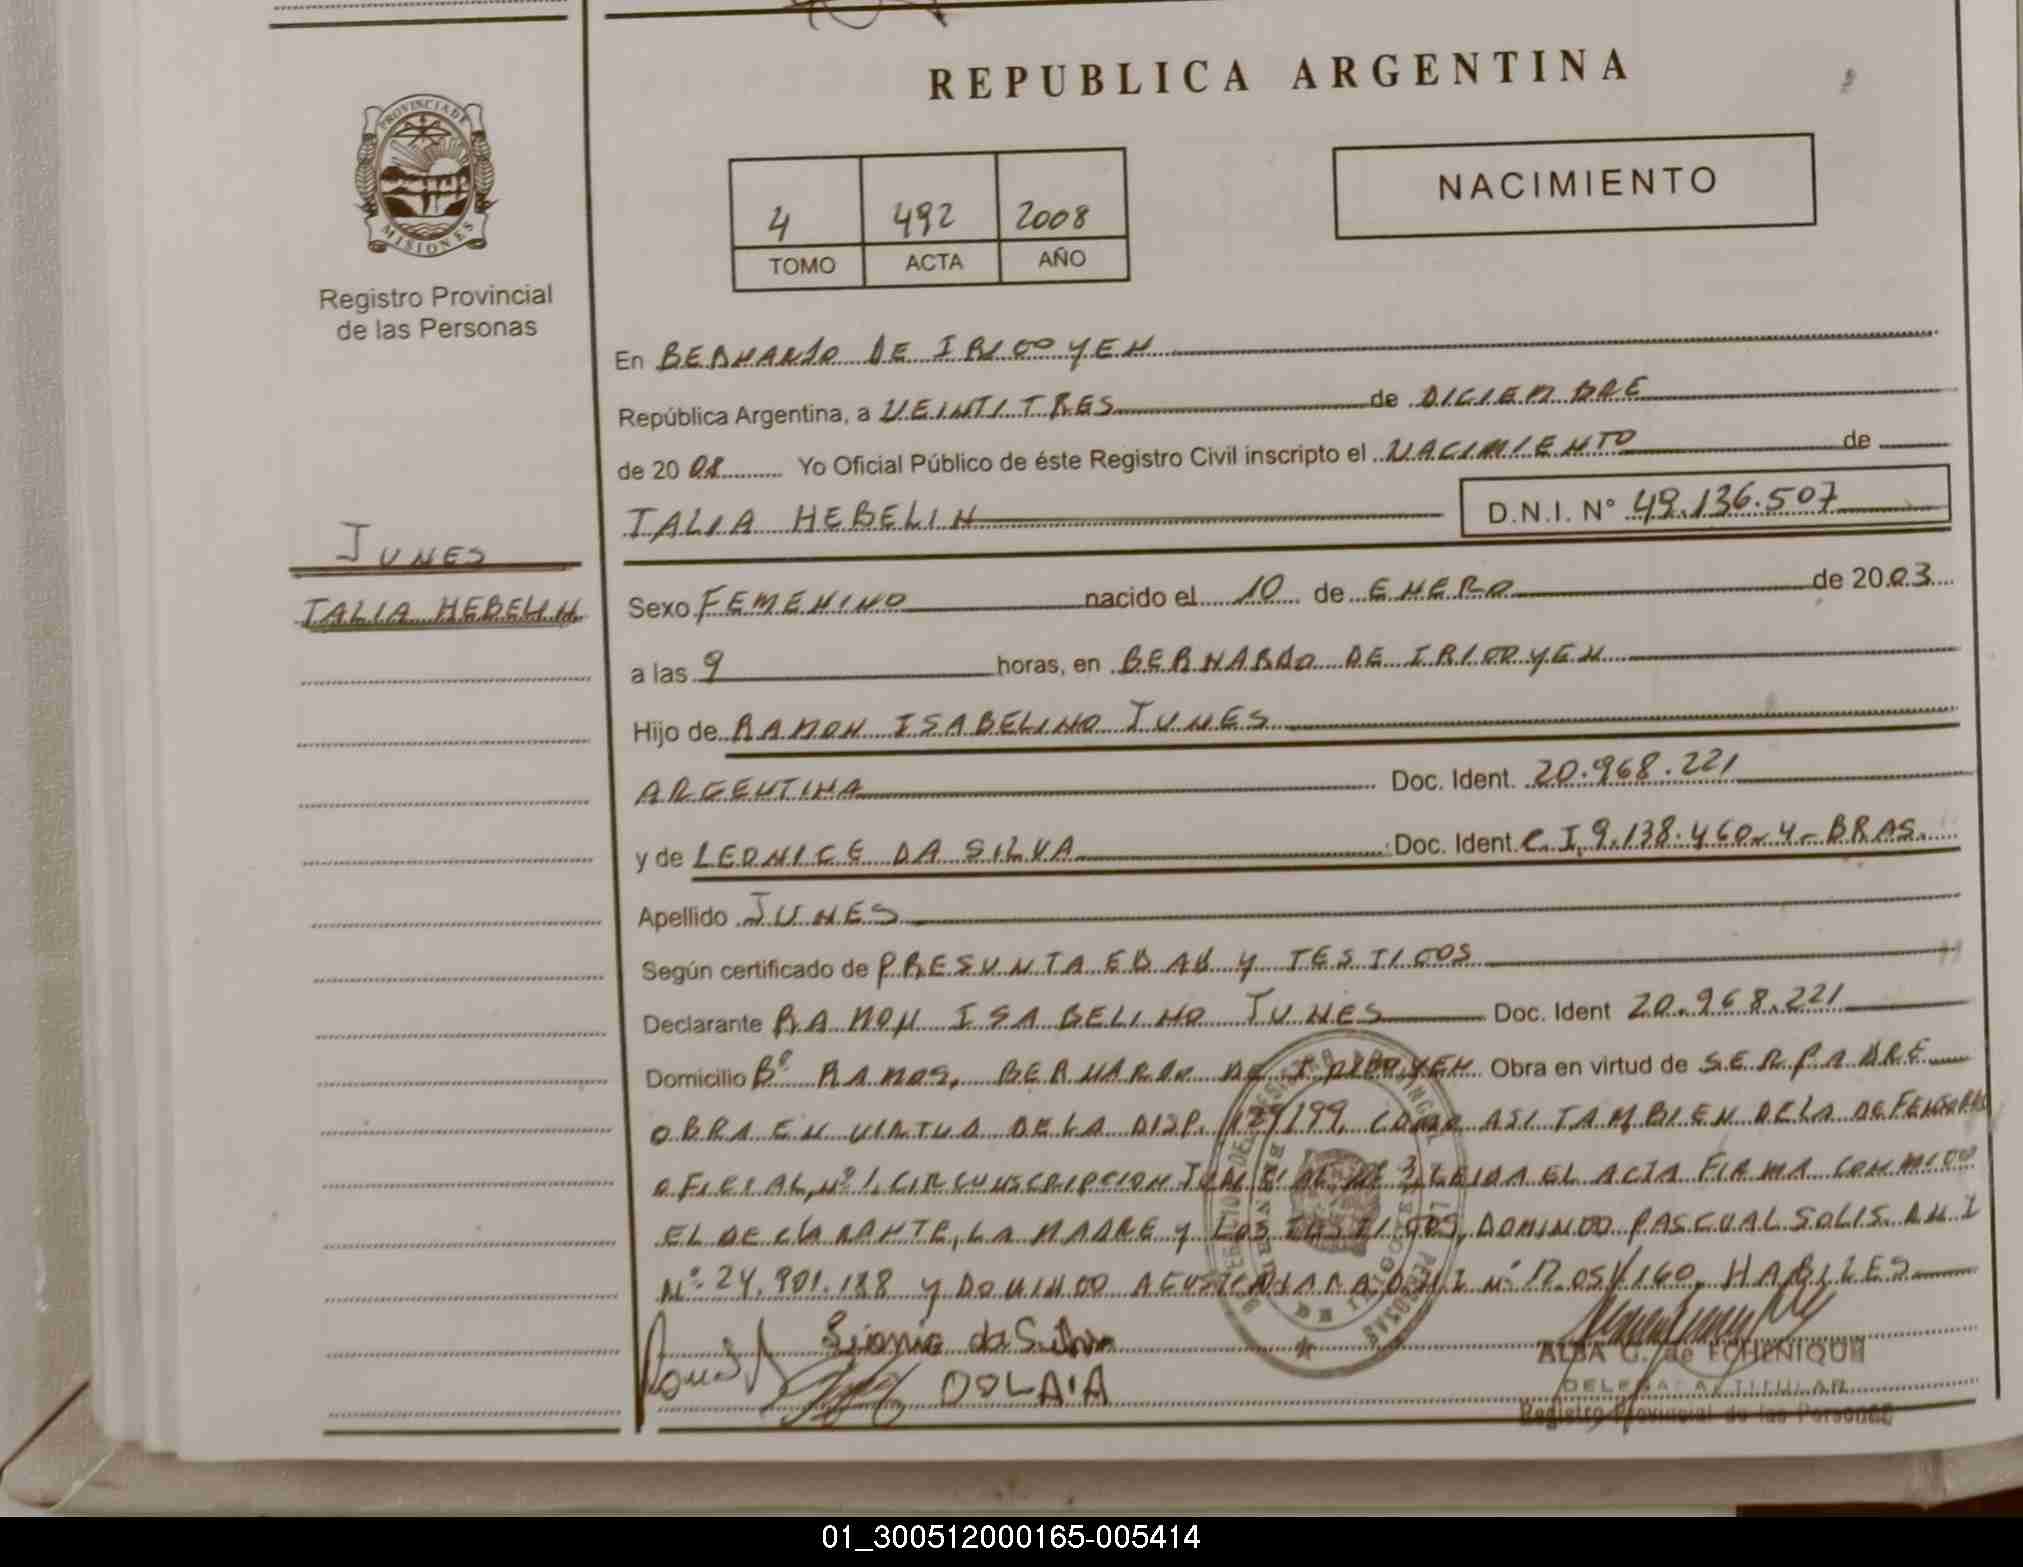 REPUBLICA ARGENTINA
PROVINCIA DE MISIONES
Registro Provincial
de las Personas
4 492 2008
TOMO ACTA AÑO
NACIMIENTO
En BERNARDO DE IRIGOYEN
República Argentina, a VEINTITRES de DICIEMBRE
de 2008 Yo Oficial Público de éste Registro Civil inscripto el NACIMIENTO de
TALIA HEBELIN D.N.I. N° 49.136.507
JUNES
TALIA HEBELIN
Sexo FEMENINO nacido el 10 de ENERO de 2003
a las 9 horas, en BERNARDO DE IRIGOYEN
Hijo de RAMON ISABELINO JUNES
ARGENTINA Doc. Ident. 20.968.221
y de LEONICE DA SILVA Doc. Ident. C.I. 9.138.460-4- BRAS.
Apellido JUNES
Según certificado de PRESUNTA EDAD Y TESTIGOS
Declarante RAMON ISABELINO JUNES Doc. Ident 20.968.221
Domicilio B° RAMOS, BERNARDO DE IRIGOYEN Obra en virtud de SER PADRE
OBRA EN VIRTUD DE LA DISP. 127/99, COMO ASI TAMBIEN DE LA DEFENSORIA
OFICIAL, N° 1, CIRCUNSCRIPCION JUDICIAL N° 3, LEIDA EL ACTA FIRMA CONMIGO
EL DECLARANTE, LA MADRE Y LOS TESTIGOS, DOMINGO PASCUAL SOLIS D.N.I
N° 24.901.188 Y DOMINGO D.N.I N° 17.051.160, HABILES
da Silva
ALBA G. de ECHENIQUE
DELEGADA TITULAR
Registro Provincial de las Personas
01_300512000165-005414